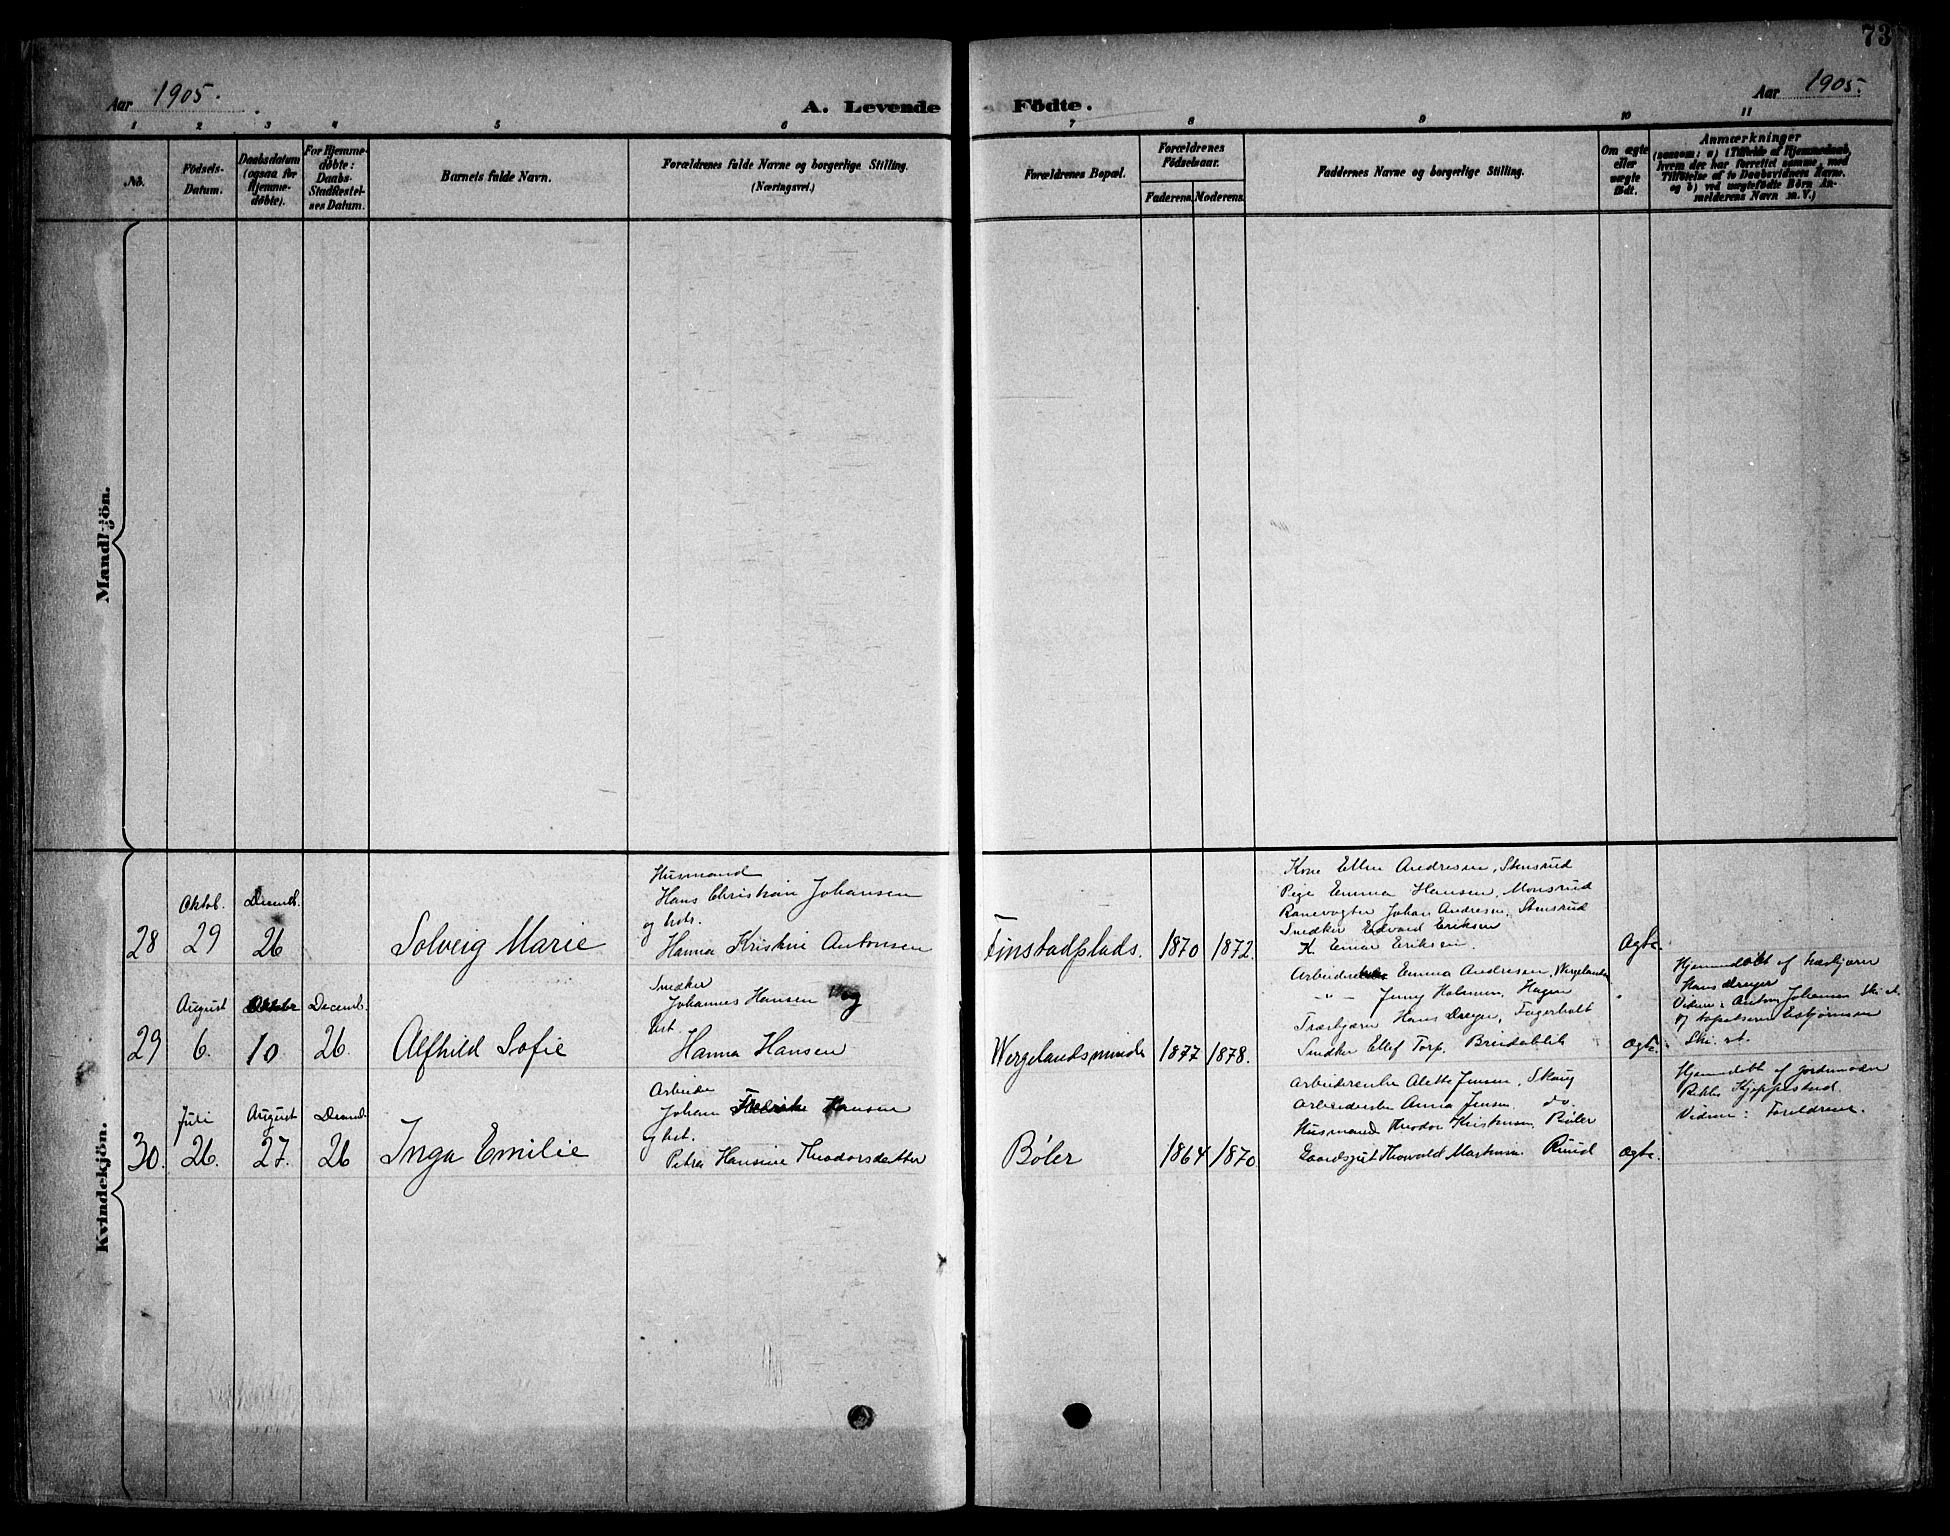 73
Aar 1905.
A. Levende Födte.
Aar 1905.
1 2 3 4 5 6 7 8 9 10 11
No.
Födsels-Datum.
Daabsdatum (ogsaa for Hjemme-døbte).
For Hjemme-døbte: Daabs-Stadfæstel-ses Datum.
Barnets fulde Navn.
Forældrenes fulde Navne og borgerlige Stilling.
(Næringsvei.)
Forældrenes Bopæl.
Forældrenes Födselsaar.
Faderens. Moderens.
Faddernes Navne og borgerlige Stilling.
Om ægte eller uægte födt.
Anmærkninger
(saasom: a) i Tilfælde af Hjemmedaab,
hvem der har forrettet samme, med
Tilföielse af to Daabsvidners Navne,
og b) ved uægtefödte Börn An-
melderens Navn m. V.)
Mandkjön.
Kvindekjön.
28
Oktob.
29
Decemb.
26
Solveig Marie
Husmand
Hans Christian Johansen
og hst.
Hanna Kristine Antonsen
Finstadplads.
1870
1872.
Kone Ellen Andresen, Stensrud
Pige Emma Hansen, Monsrud
Banevogter Johan Andresen, Stensrud
Snedker Edvard Eriksen
K. Einar Eriksen.
Ægte
29
August
6.
Oktober
10
Decemb.
26.
Alfhild Sofie
Snedker
Johannes Hansen og
hst.
Hanna Hansen
Wergelandsminde
1877
1878.
Arbeiderske Emma Andresen, Wergelands
-"- Jenny Holmen, Hagen
Træskjærer Hans Dreyer, Fagerholt
Snedker Ellef Torp, Breidablik
Ægte.
Hjemmedøbt af træskjærer
Hans Dreyer
Vidner: Anton Johansen Ski st.
og tapetserer Esbjørnsen
Ski st.
30.
Juli
26.
August
27.
Decemb.
26
Inga Emilie
Arbeider
Johan Fredrik Hansen
og hst.
Petra Hansine Theodorsdatter
Bøler
1864
1870
Arbeiderenke Alette Jensen, Skaug
Arbeiderske Anna Jensen do.
Husmand Theodor Kristensen, Bøler
Gaardsgut Thorvald Martinsen Ruud
Ægte.
Hjemmedøbt af jordmoder
Kjeppestad.
Vidner: Forældrene.